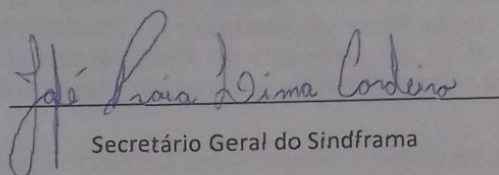 José Praia Lima Cordeiro
Secretário Geral do Sindframa